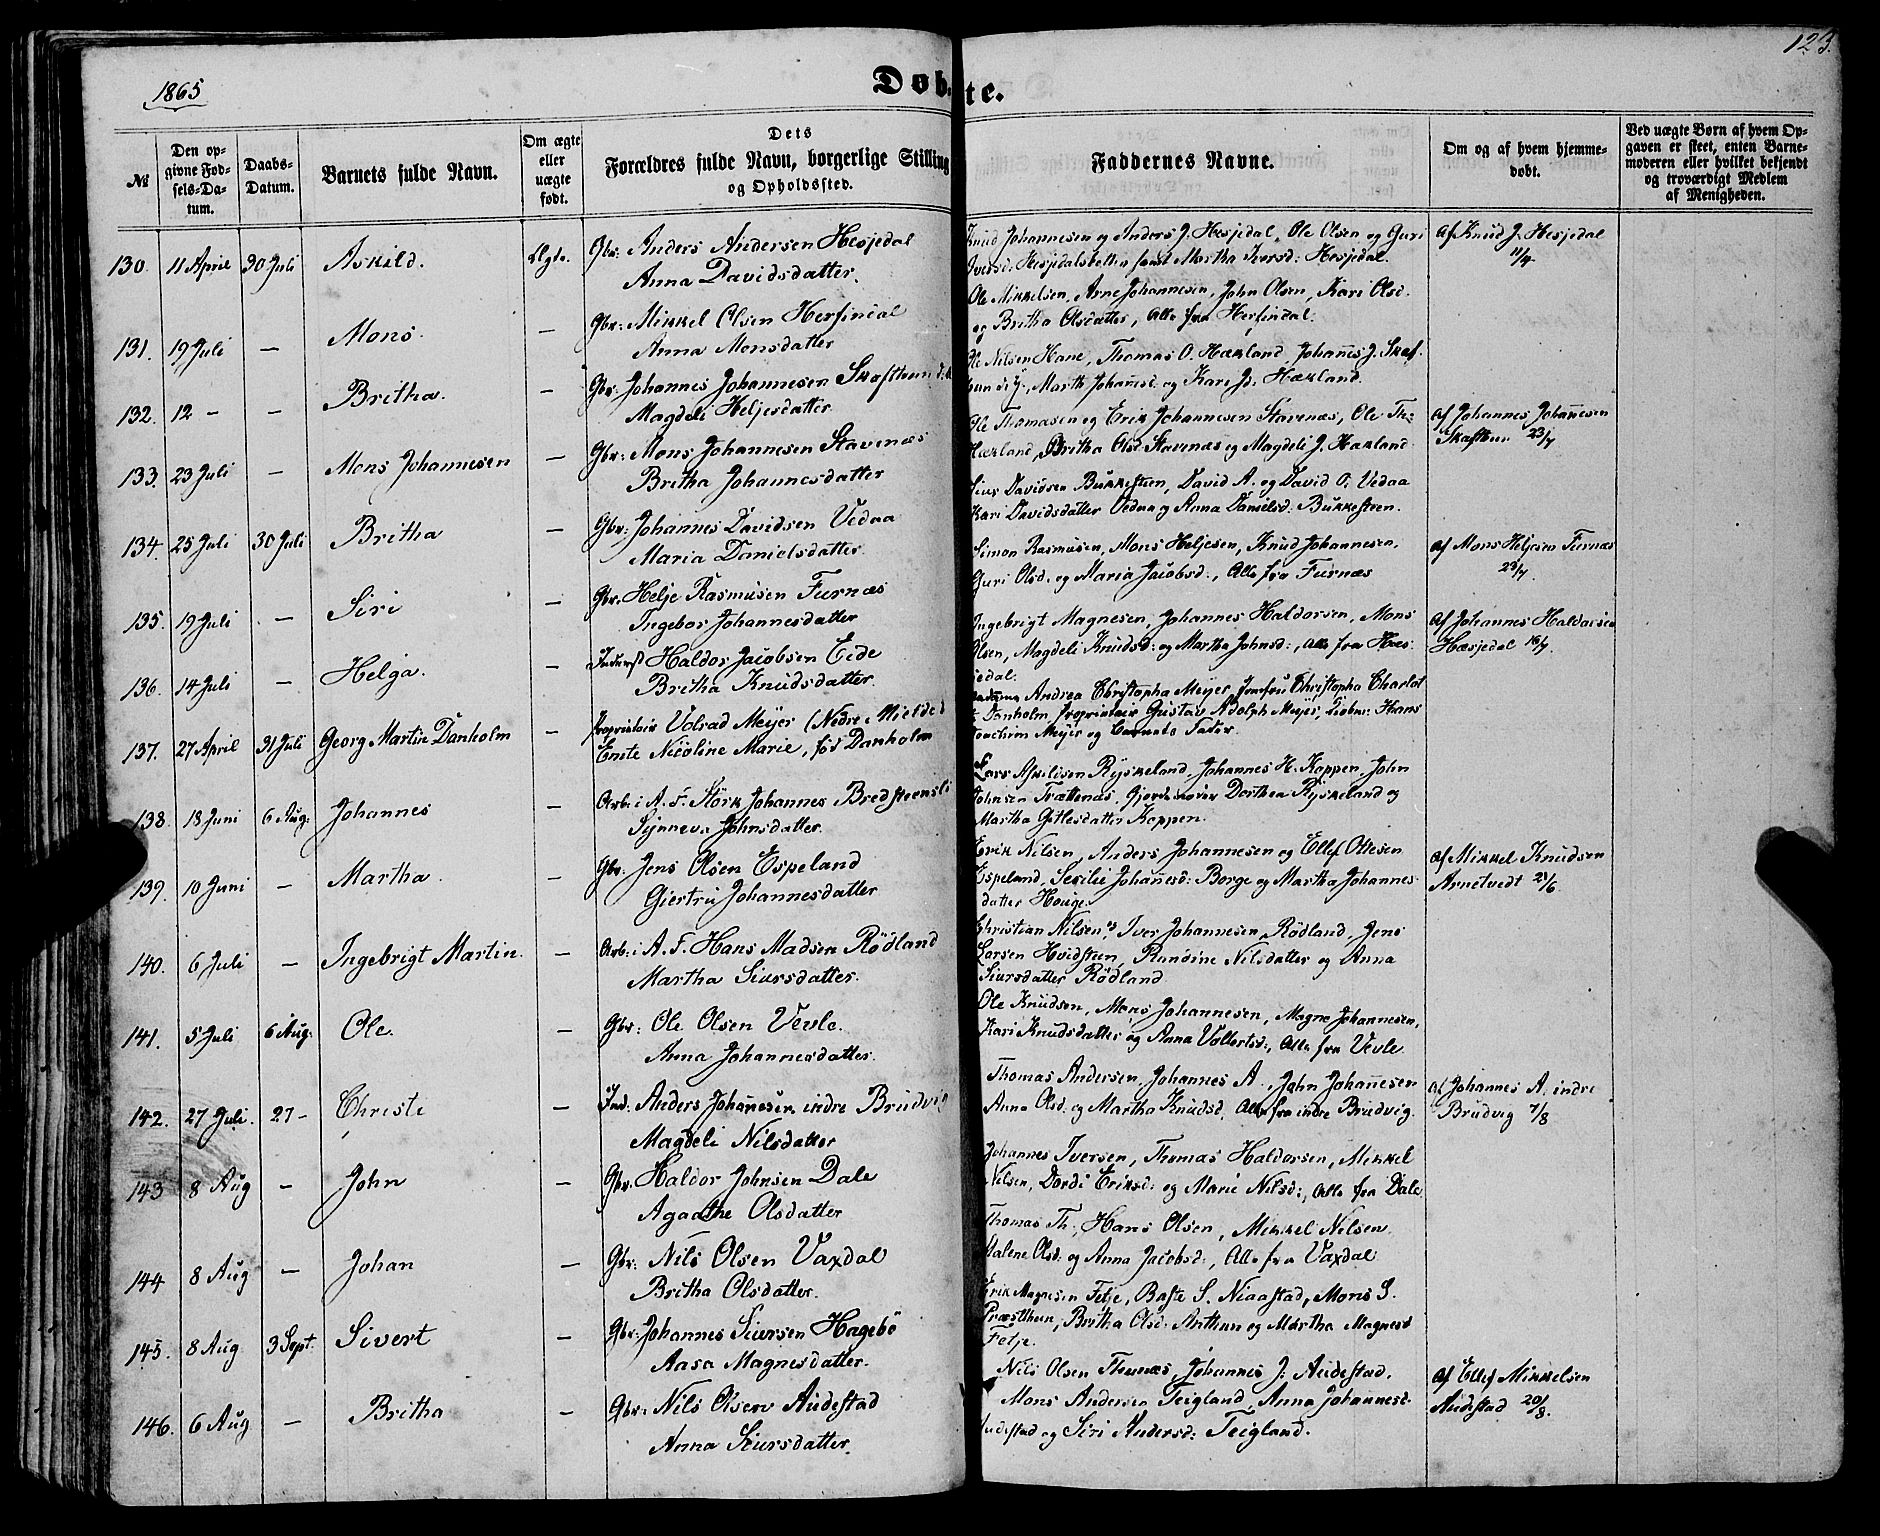 1865
Døbte.
123.
№
Den opgivne Fødsels-Datum.
Daabs-Datum.
Barnets fulde Navn.
Om ægte eller uægte født.
Dets Forældres fulde Navn, borgerlige Stilling og Opholdssted.
Faddernes Navne.
Om og af hvem hjemmedøbt.
Ved uægte Børn af hvem Opgaven er skeet, enten Barnemoderen eller hvilket bekjendt og troværdigt Medlem af Menigheden.
130. 11 April 30 Juli Askild. Ægte. Gbr: Anders Andersen Hesjedal
Anna Davidsdatter.
Knud Johannesen og Anders J. Hesjedal, Ole Olsen og Guri
Iversd: Hesjedalsbotten samt Martha Iversd: Hesjedal.
af Knud J. Hesjedal
11/4
131. 19 Juli — Mons. — Gbr: Mikkel Olsen Herfindal
Anna Monsdatter
Ole Mikkelsen, Arne Johannesen, John Olsen, Kari Olsd.
og Britha Olsdatter, Alle fra Herfindal.
132. 12 — — Britha. — Gbr: Johannes Johannesen Skafthun
Magdeli Heljesdatter
Ole Nilsen Hane, Thomas O. Hækland, Johanes J. Skaf-
Marth Johanesd: og Kari J: Hækland.
133. 23 Juli — Mons Johannesen — Gbr: Mons Johannesen Stavenæs
Britha Johannesdatter
Ole Thomasen og Erik Johannesen Stavenæs, Ole Th:
Hækland, Britha Olsd Stavenæs og Magdeli J. Hækland
af Johannes Johanesen
Skafthun 23/7
134. 25 Juli 30 Juli Britha — Gbr: Johannes Davidsen Vedaa
Maria Danielsdatter
Siur Davidsen Bukkesteen, David A. og David O. Vedaa
Kari Davidsdatter Vedaa og Anna Danielsd: Bukkesteen.
135. 19 Juli — Siri — Gbr. Helje Rasmusen Furnæs
Ingebor Johannesdatter
Simon Rasmusen, Mons Heljesen, Knud Johannesen,
Guri Olsd. og Maria Jacobsd:, Alle fra Furnæs
af Mons Heljesen Furnæs
23/7.
136. 14 Juli — Helga. — Inderst Haldor Jacobsen Eide
Britha Knudsdatter.
Ingebrigt Magnesen, Johannes Haldorsen, Mons
Olsen, Magdeli Knudsd: og Martha Johnsd:, Alle fra Hæs-
jedal.
af Johannes Haldorsen
Hæsjedal 16/7
137. 27 April 31 Juli Georg Martin Danholm — Proprietair Volrad Meyer (Nedre
Emte Nicoline Marie, fød Danholm
Madame Andrea Christopha Meyer, Jomfru Christopha Charlot
Danholm, Proprietair Gustav Adolph Meyer, Hans
Joachim Meyer og Barnets Fader.
138. 18 Juni 6 Aug: Johannes — Arb: i A. F. Størk Johannes Bredsteensli
Synneva Johnsdatter.
Lars Askildsen Ryskeland, Johannes H. Koppen, John
Johnsen Trættenæs, Gjordemoder Dorthea Ryskeland og
Martha Gotlesdatter Koppen.
139. 10 Juni — Martha. — Gbr. Jens Olsen Espeland
Giertru Johannesdatter
Erik Nilsen, Anders Johannesen og Ellef Ottesen
Espeland, Secilie Johanesd: Borge og Martha Johannes-
datter Houge.
af Mikkel Knudsen
Arnetvedt 21/6.
140. 6 Juli — Ingebrigt Martin. — Arb: i A. F. Hans Madsen Rødland
Martha Siursdatter.
Christian Nilsen, Iver Johannesen Rødland, Jens
Larsen Hvidsteen, Randine Nilsdatter og Anna
Siursdatter Rødland
141. 5 Juli 6 Aug: Ole. — Gbr: Ole Olsen Vevle.
Anna Johannesdatter.
Ole Knudsen, Mons Johannesen, Magne Johannesen,
Kari Knudsdatter og Anna Vollertsd:, Alle fra Vevle
142. 27 Juli. 27 — Christi — Ind: Anders Johanesen indre Brudvig
Magdeli Nilsdatter
Thomas Andersen, Johannes A., John Johanesen
Anna Olsd. og Martha Knudsd. Alle fra indre Brudvig.
af Johannes A. indre
Brudvig 1/8
143 8 Aug — John — Gbr. Haldor Johnsen Dale
Agaathe Olsdatter
Johannes Iversen, Thomas Haldorsen, Mikkel
Nilsen, Dordi Eriksd: og Marie Nilsd:, Alle fra Dale
144 8 Aug — Johan — Gbr: Nils Olsen Vaxdal
Britha Olsdatter.
Thomas Th:, Hans Olsen, Mikkel Nilsen,
Malene Olsd: og Anna Jacobsd:, Alle fra Vaxdal
145. 8 Aug 3 Sept. Sivert — Gbr: Johannes Siursen Hagebø
Aasa Magnesdatter.
Erik Magnesen Fetje, Baste S. Niaastad, Mons S.
Præsthun, Britha Olsd. Arthun og Martha Magnesd
Fetje.
146. 6 Aug — Britha — Gbr: Nils Olsen Audestad
Anna Siursdatter.
Nils Olsen Thunæs, Johannes J. Audestad,
Mons Andersen Teigland, Anna Johannesd.
Audestad og Siri Andersd: Teigland.
af Ellef Mikkelsen
Audestad 20/8.